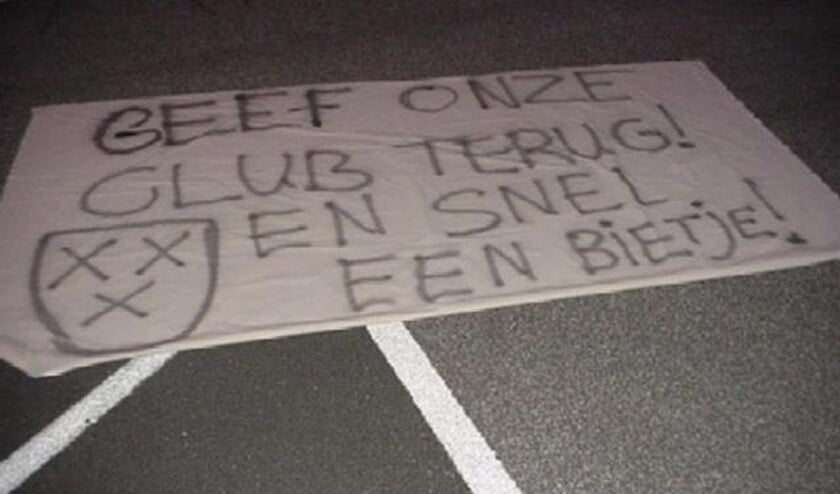 GEEF ONZE
CLUB TERUG!
EN SNEL
EEN BiETjE!
XX
X